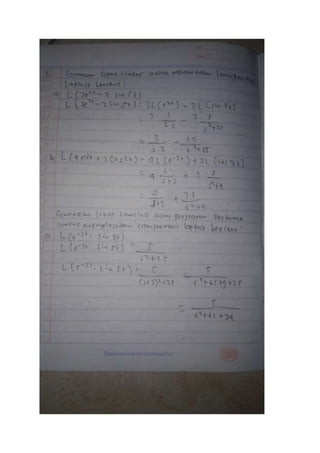 2. Gunakan sifat linier untuk menentukan
Laplace berikut:
a. L (3e²ᵗ - 2 sin 5t)
L (3e²ᵗ - 2 sin 5t) = 3L (e²ᵗ) - 2L (sin 5t)
= 3 · 1/s-2 - 2 · 5/s²+25
= 3/s-2 - 10/s²+25
b. L (4e⁻³ᵗ + 3 cos 2t) = 4L (e⁻³ᵗ) + 3L (cos 2t)
= 4 1/s+3 + 3 s/s²+4
= 4/s+3 + 3s/s²+4
Gunakan sifat translasi atau pergeseran pertama
untuk menyelesaikan transformasi laplace berikut:
a. L (e⁻³ᵗ · sin 5t)
L (e⁻³ᵗ · sin 5t) = 5/s²+25
L (e⁻³ᵗ · sin 5t) = 5/(s+3)²+25 = 5/s²+6s+9+25
= 5/s²+6s+34